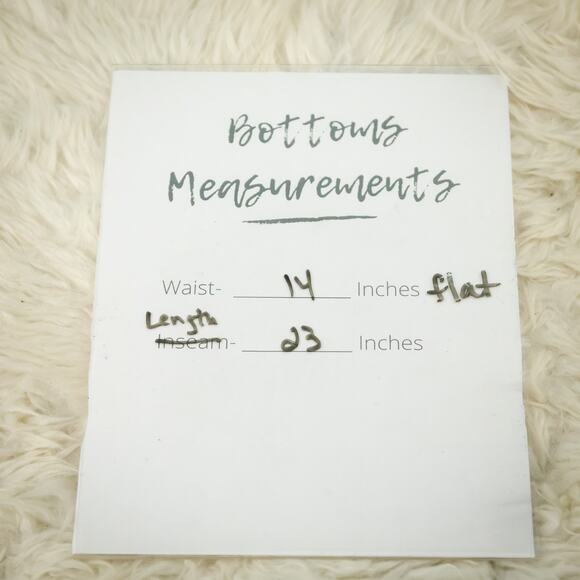 Bottoms
Measurements
Waist- 14 Inches flat
Length
Inseam- 23 Inches